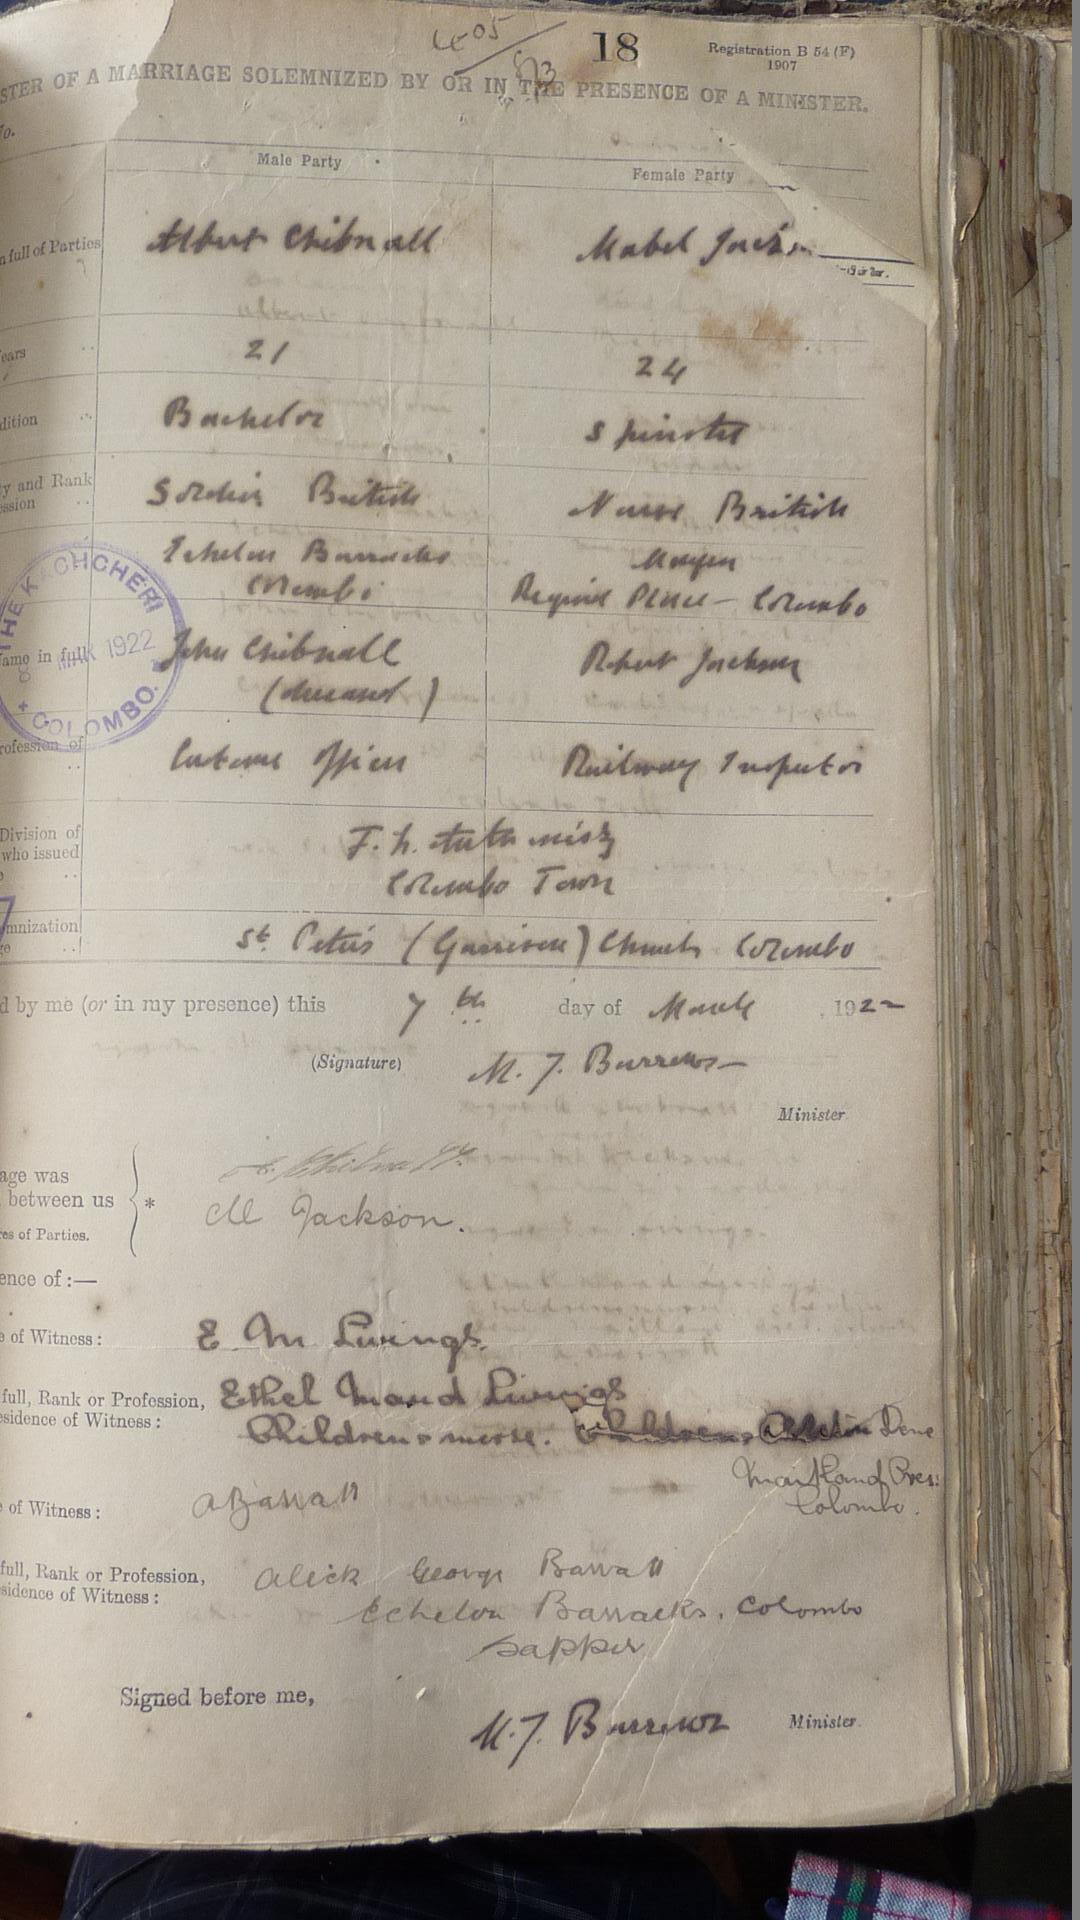 18
Registration B 54 (F)
1907
STER OF A MARRIAGE SOLEMNIZED BY OR IN THE PRESENCE OF A MINISTER.
No.
Male Party
Female Party
n full of Parties
Albert Chibnall
Mabel Jacks
ears
21
24
dition
Bachelor
Spinster
ty and Rank
ession
Soldier British
Nurse British
Echelon Barracks
Colombo
Place - Colombo
THE KACHCHERI
MAR 1922
COLOMBO.
ame in full
John Chibnall
(deceased)
Robert Jackson
rofession of
Customs Officer
Railway Inspector
Division of
who issued
Colombo Town
mnization
ge
St. Peter's (Garrison) Church Colombo
d by me (or in my presence) this 7th day of March 1922
(Signature) M. J. Burrows
Minister
age was
between us
res of Parties.
*
A. Chibnall
M Jackson.
ence of:—
e of Witness:
E. M Livings.
full, Rank or Profession,
esidence of Witness:
Ethel Maud Livings
Children's nurse. Dene
Maitland Cres:
Colombo.
e of Witness:
A Barrall
full, Rank or Profession,
sidence of Witness:
Alick George Barrall
Echelon Barracks. Colombo
Sapper
Signed before me,
M. J. Burrows
Minister.